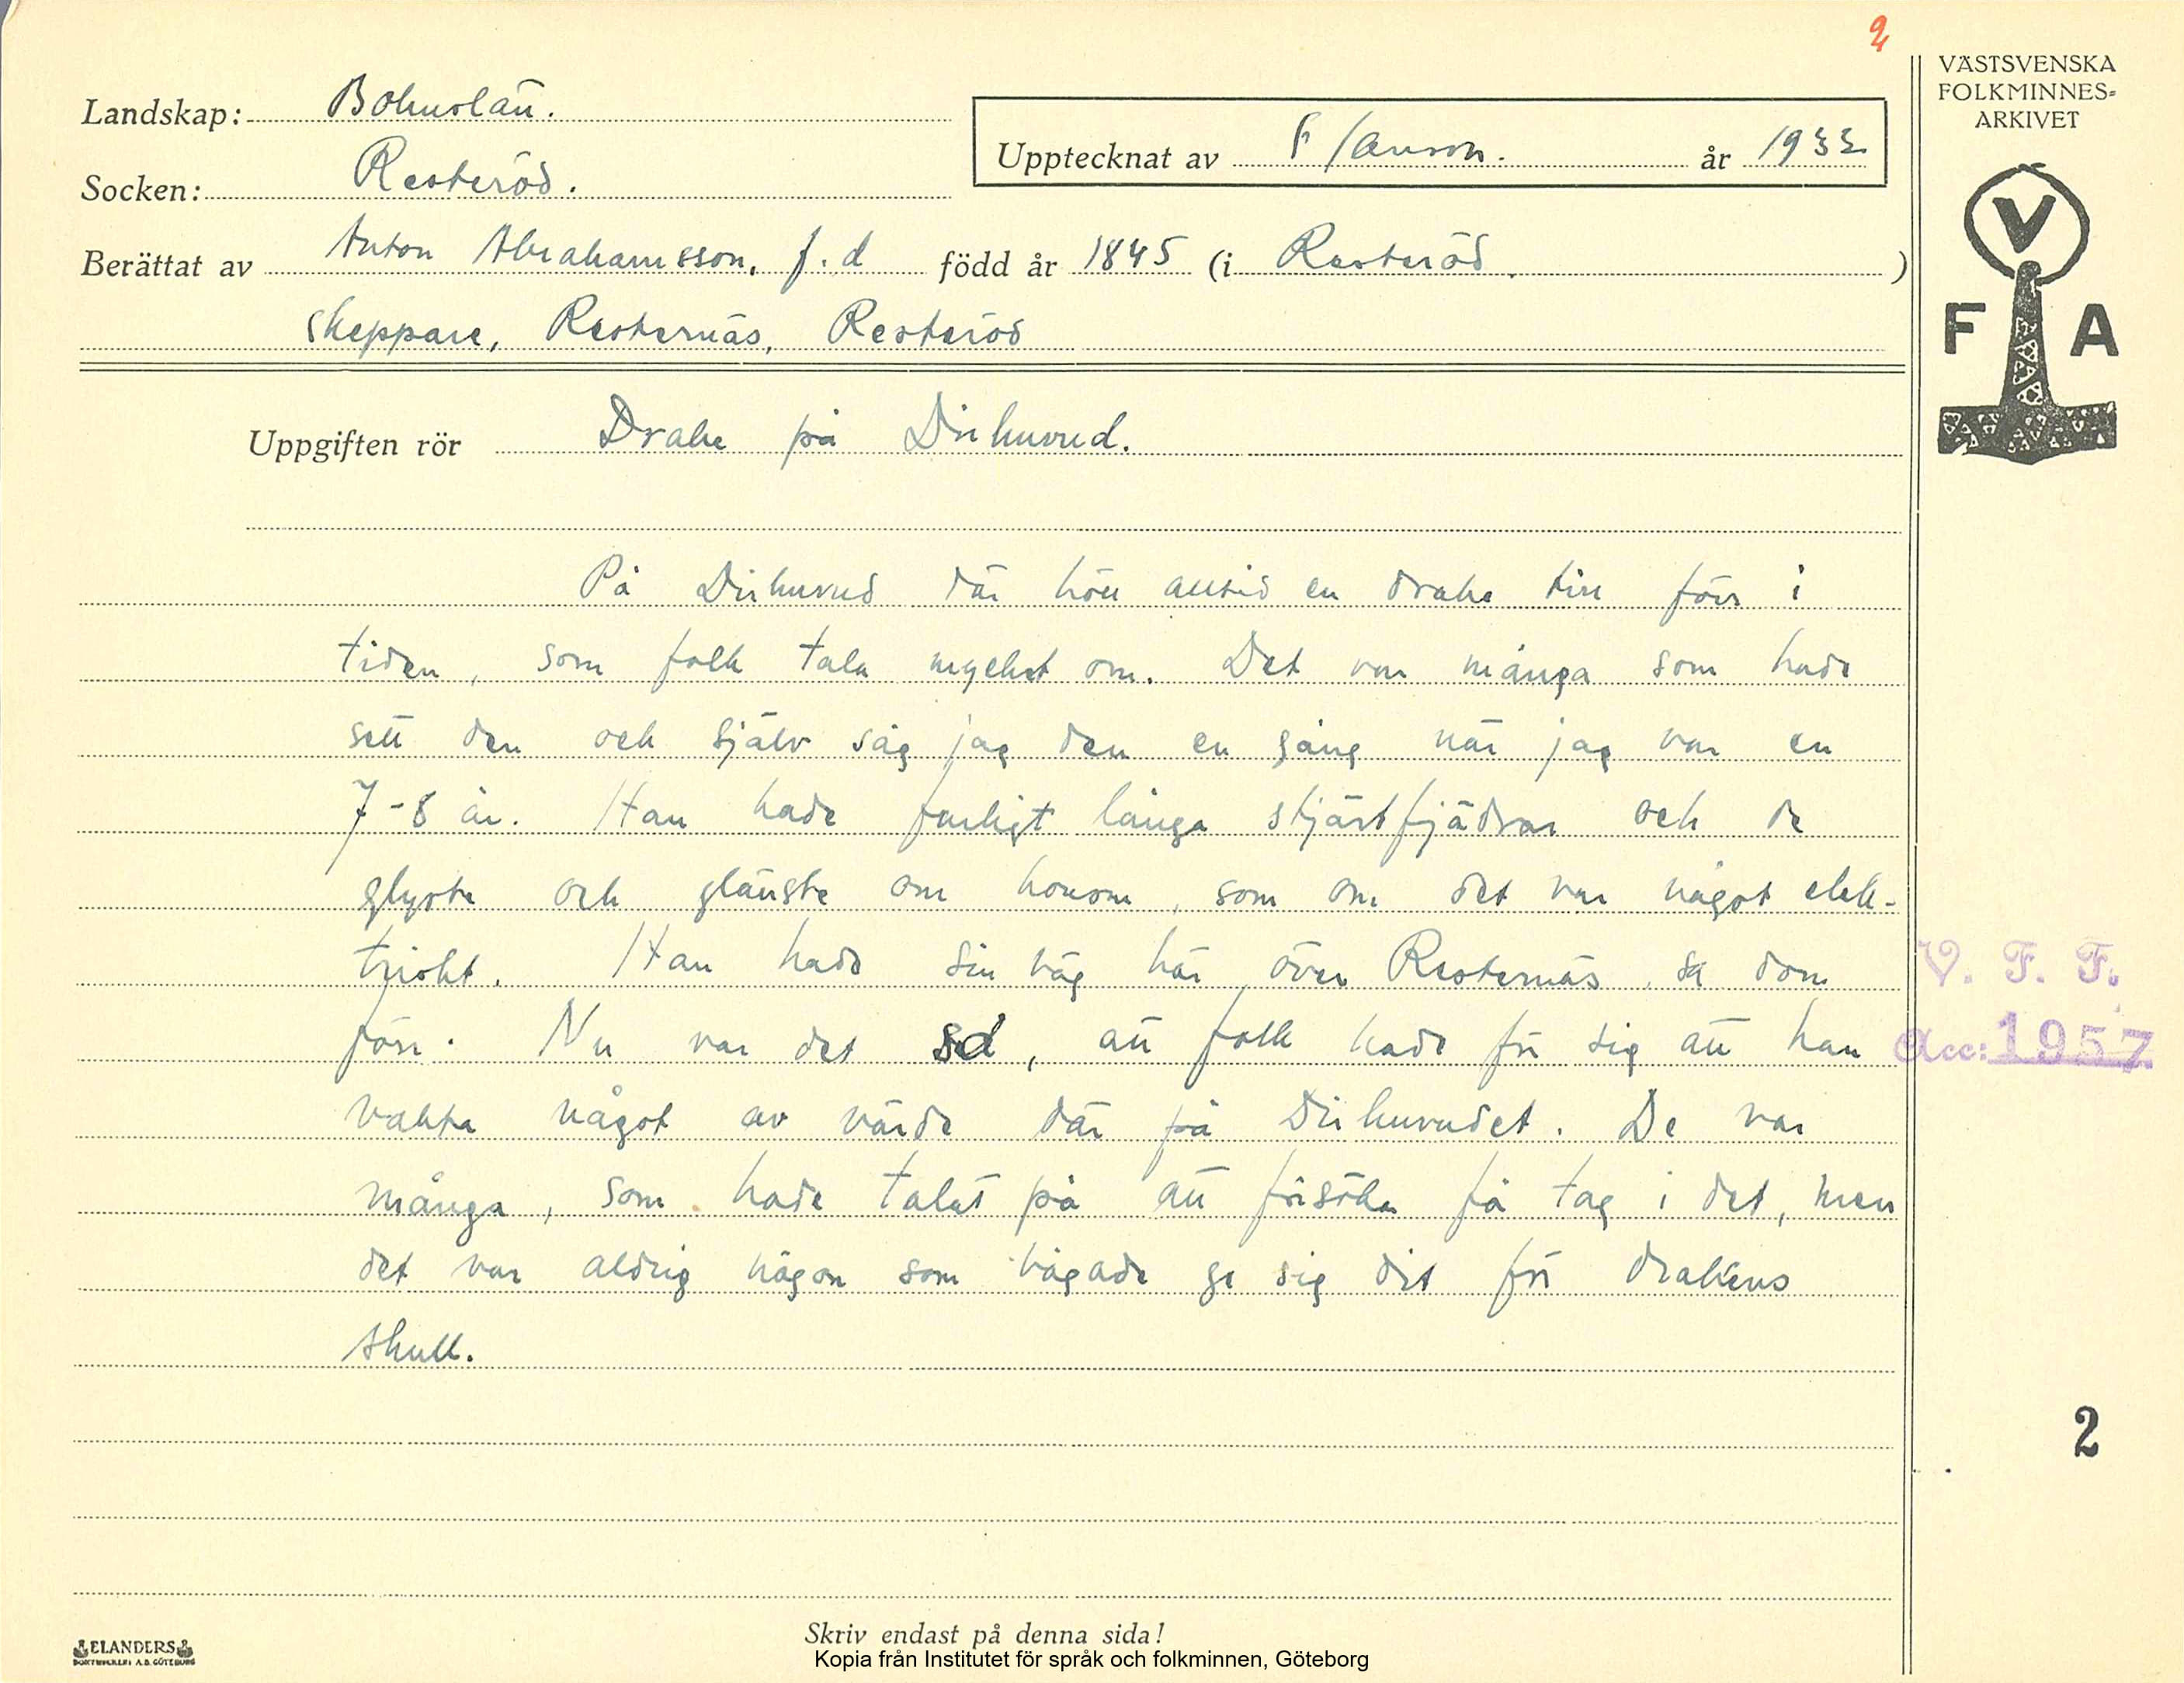 2
VÄSTSVENSKA
FOLKMINNES-
ARKIVET
Landskap: Bohuslän.
Upptecknat av år 1933
Socken: Resteröd.
Berättat av Anton Abrahamsson, f.d född år 1845 (i Resteröd.)
skeppare, Resternäs, Resteröd
V
F A
Uppgiften rör Drake på Dirhuvud.
På Dirhuvud där höll alltid en drake till förr i
tiden, som folk tala mycket om. Det var många som hade
sett den och själv såg jag den en gång när jag var en
7-8 år. Han hade farligt långa stjärtfjädrar och de
glyste och glänste om honom, som om det var något elek-
triskt. Han hade sin väg här över Resternäs, sa dom
förr. Nu var det så, att folk hade för sig att han
vakta något av värde där på Dirhuvudet. De var
många, som hade talat på att försöka få tag i det, men
det var aldrig någon som vågade ge sig dit för drakens
skull.
V. F. F.
Acc: 1957
2
Skriv endast på denna sida!
ELANDERS
BOKTRYCKERI A.B. GÖTEBORG
Kopia från Institutet för språk och folkminnen, Göteborg